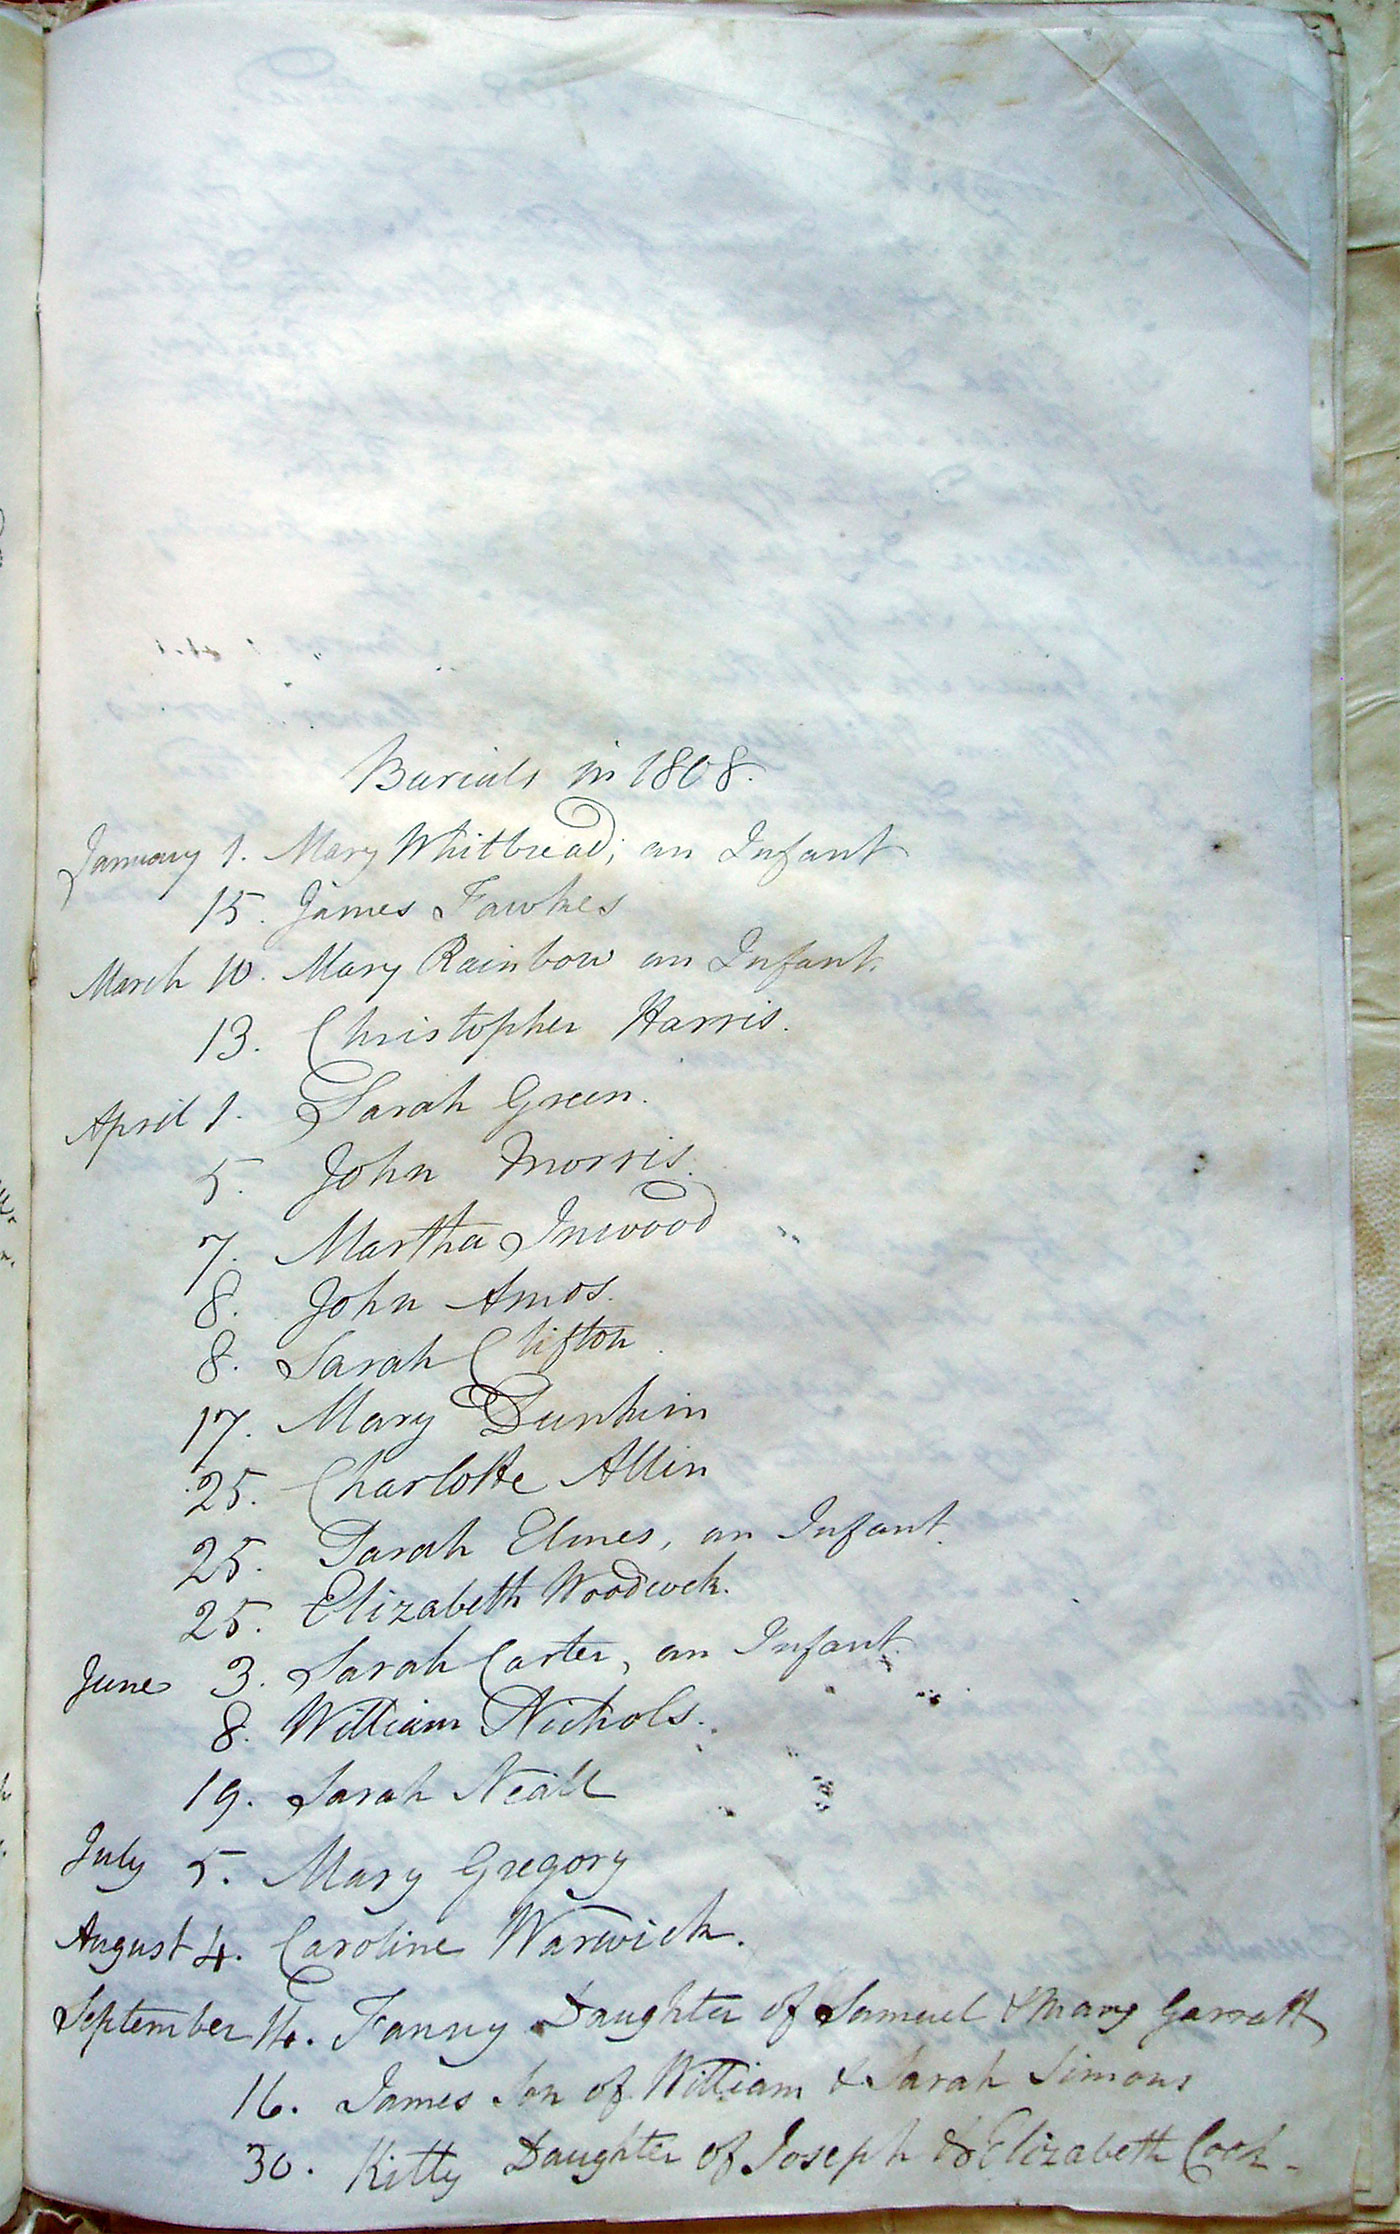 Burials in 1808.
January 1. Mary Whitbread; an Infant
15. James Fawkes
March 10. Mary Rainbow an Infant.
13. Christopher Harris.
April 1. Sarah Green.
5. John Morris.
7. Martha Inwood
8. John Amos.
8. Sarah Clifton.
17. Mary Dunkin
25. Charlotte Allin
25. Sarah Elmes, an Infant.
25. Elizabeth Woodcock.
June 3. Sarah Carter, an Infant.
8. William Nichols.
19. Sarah Neall
July 5. Mary Gregory
August 4. Caroline Warwick.
September 14. Fanny Daughter of Samuel & Mary Garratt
16. James Son of William & Sarah Simons
30. Kitty Daughter of Joseph & Elizabeth Cook-